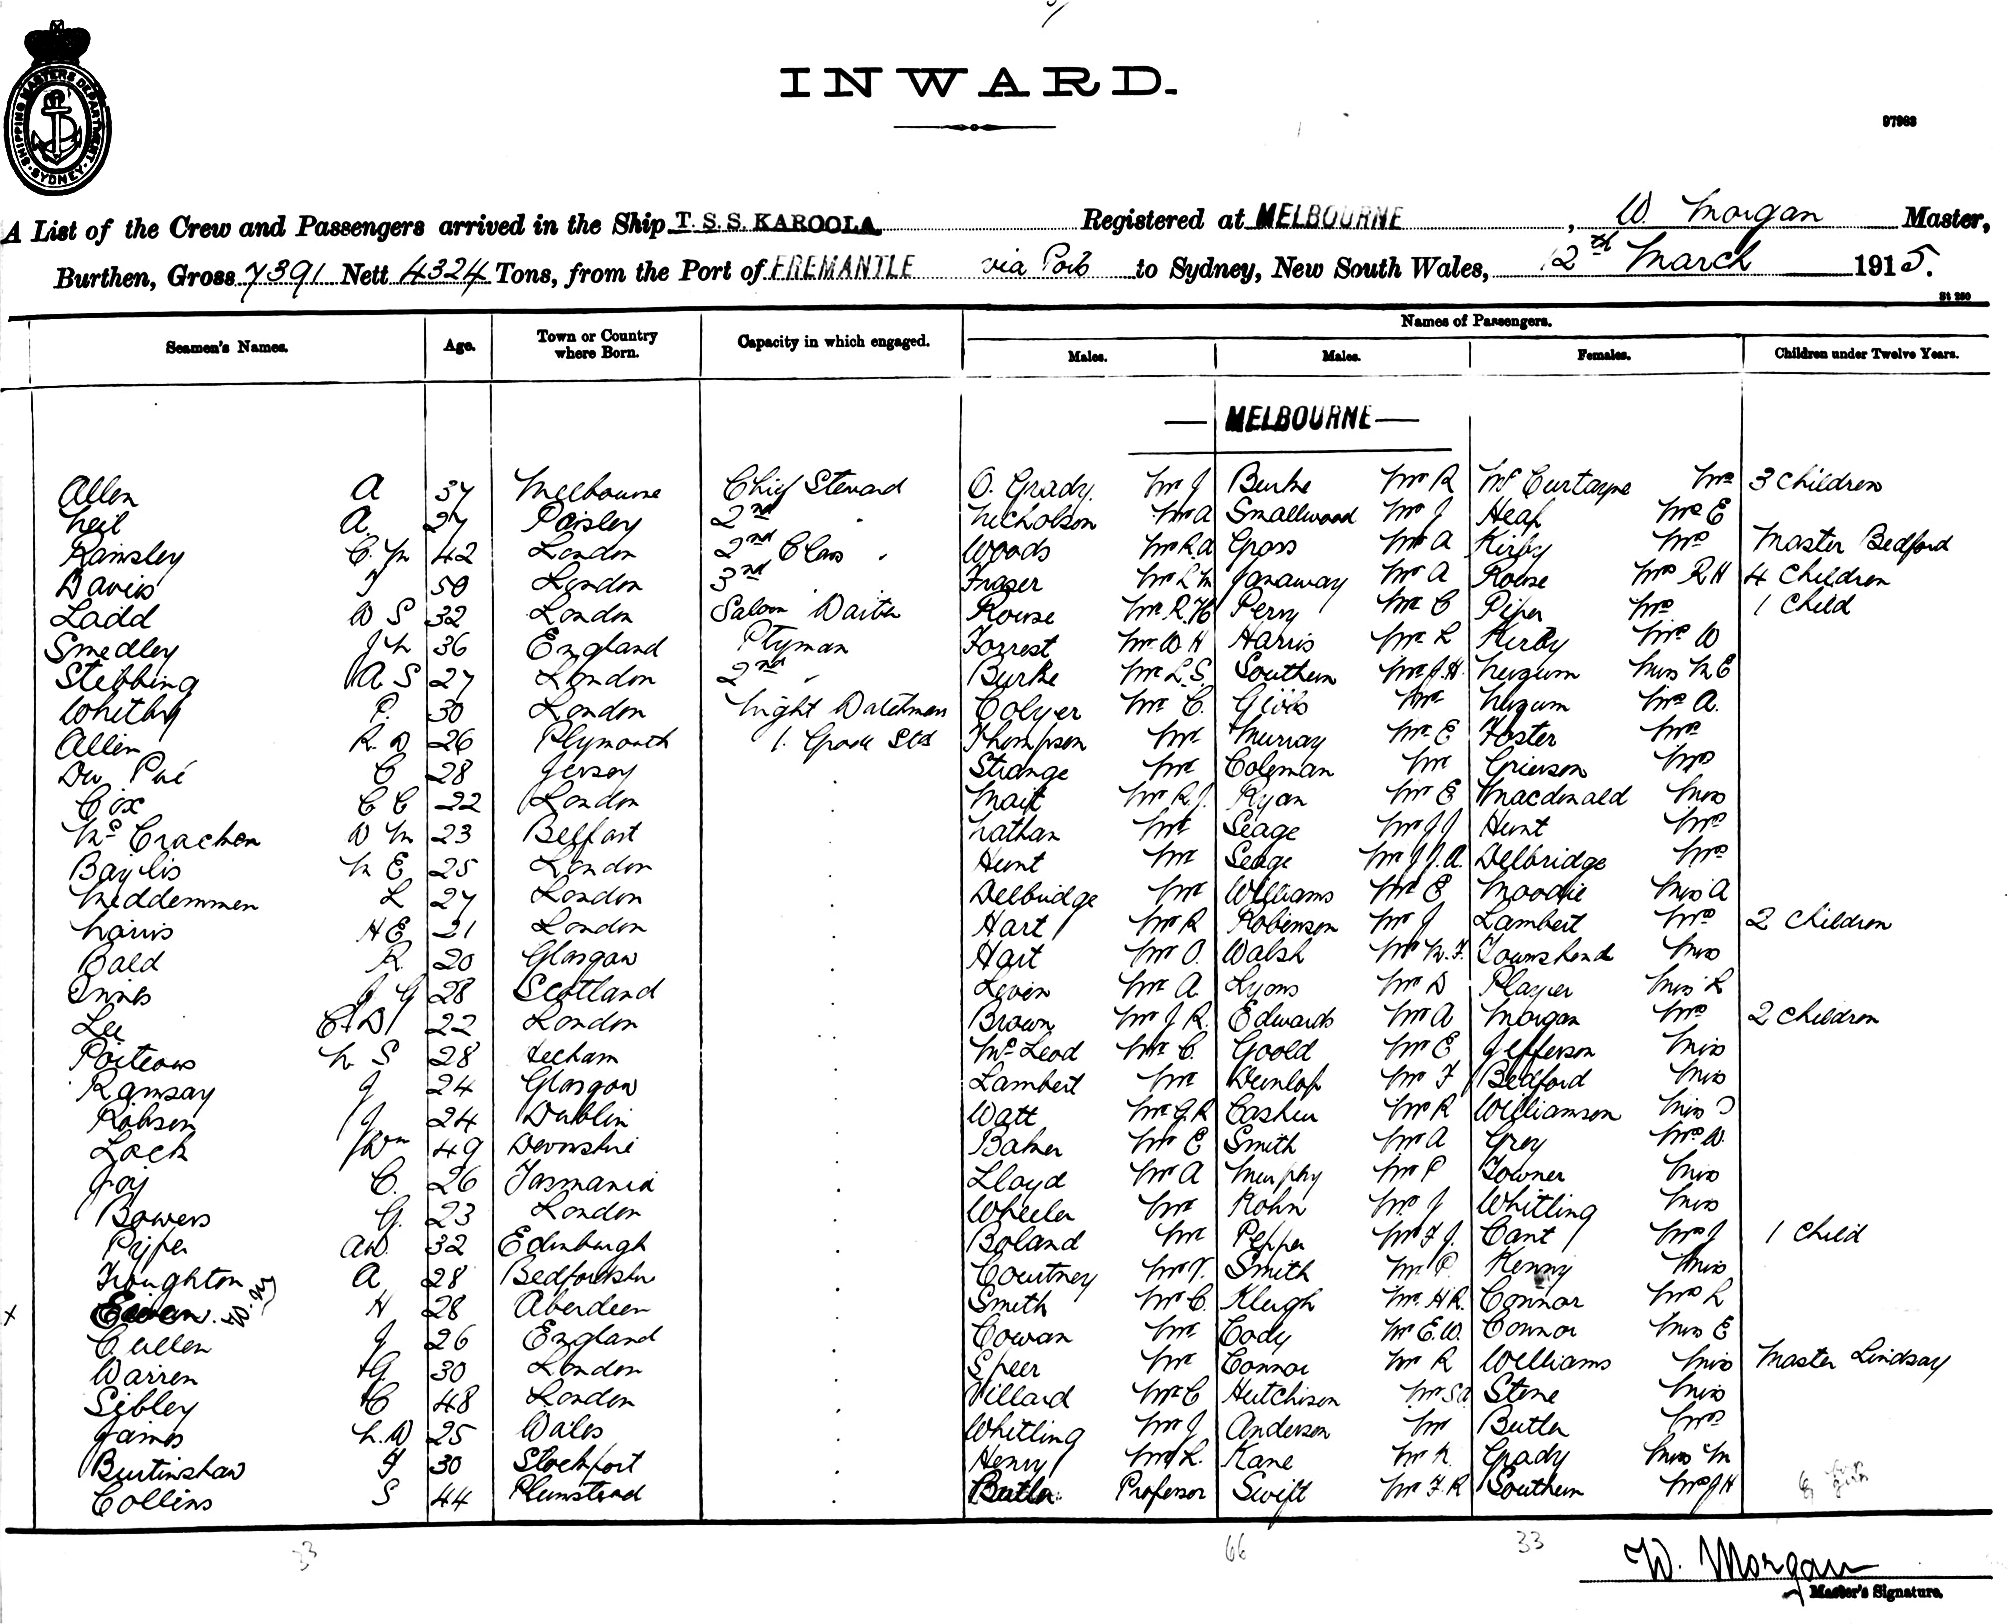 SHIPPING MASTERS DEPARTMENT
SYDNEY
INWARD.
97983
A List of the Crew and Passengers arrived in the Ship T.S.S. KAROOLA Registered at MELBOURNE, W. Morgan Master,
Burthen, Gross 7391 Nett 4324 Tons, from the Port of FREMANTLE via Ports to Sydney, New South Wales, 12th March 1915.
St 250
Names of Passengers.
Seamen's Names. Age. Town or Country where Born. Capacity in which engaged. Males. Males. Females. Children under Twelve Years.
— MELBOURNE —
Allen A 37 Melbourne Chief Steward O. Grady Mr J Burke Mr R McCurtayne Mrs 3 Children
Neil A 27 Paisley 2nd " Nicholson Mr A Smallwood Mr J Heap Mrs E
Ramsley C. M 42 London 2nd Class " Woods Mr R.A Gross Mr A Kirby Mrs Master Bedford
Davies J 50 London 3rd " Fraser Mr L M Janaway Mr A Rowse Mrs R H 4 Children
Ladd W S 32 London Saloon Waiter Rowse Mr R.H Perry Mr C Piper Mrs 1 Child
Smedley J H 36 England P'tyman Forrest Mr W H Harris Mr L Kirby Mrs W
Stebbing A S 27 London 2nd " Burke Mr L.S. Southern Mr J.H. Nugum Miss M E
Whitby P. 30 London Night Watchman Colyer Mr C. Mr Nugum Mrs A.
Allen R. W 26 Plymouth 1. Grade Std Thompson Mr Murray Mr E Foster Mrs
28 Jersey Strange Mr Coleman Mr Grierson Mrs
Cox C C 22 London Mr R.J. Ryan Mr E Macdonald Miss
McCracken W M 23 Belfast Nathan Mr Seage Mr J J Hunt Mrs
Baylis H E 25 London Hunt Mr Seage Mr J J.A. Delbridge Mrs
Middemmen L 27 London Delbridge Mr Williams Mr E Moodie Miss A
Harris H E 21 London Hart Mr R Robinson Mr J Lambert Mrs 2 Children
Bald R 20 Glasgow Hart Mr O. Walsh Mr M.F. Townshend Miss
Innes J G 28 Scotland Levin Mr A. Lyons Mr D Player Miss L
Lee C. D 22 London Brown Mr J R. Edwards Mr A Morgan Mrs 2 Children
Porteous H S 28 McLeod Mr C. Goold Mr E Jefferson Miss
Ramsay J 24 Glasgow Lambert Mr Dunlop Mr F Bedford Miss
Robson J 24 Dublin Watt Mr G.R Cashen Mr R Williamson Miss
Lock Wm 49 Devonshire Baker Mr E Smith Mr A Grey Mrs W.
Joy C. 26 Tasmania Lloyd Mr A Murphy Mr P Towner Miss
Bowers G. 23 London Wheeler Mr Kohn Mr J Whitling Miss
Pyper A.W. 32 Edinburgh Boland Mr Pepper Mr F J. Cant Mrs J 1 Child
Troughton A 28 Bedfordshire Courtney Mr V. Smith Mr P. Kenny Miss
x Ewen. H 28 Aberdeen Smith Mr C. Kleigh Mr H R. Connor Mrs L
Cullen J 26 England Cowan Mr Cody Mr E.W. Connor Miss E
Warren G 30 London Speer Mr Connor Mr R Williams Miss Master Lindsay
Sibley C 48 London Villard Mr C Hutchison Stone Miss
James L.W 25 Wales Whitling Mr J Anderson Mr Butler Mrs
Burtinshaw F 30 Stockport Henry Mr L. Kane Mr N. Grady Miss M
Collins S 44 Plumstead Butler: Professor Swift Mr F.R Southern Mrs J H
33 66 33
W. Morgan
Master's Signature.